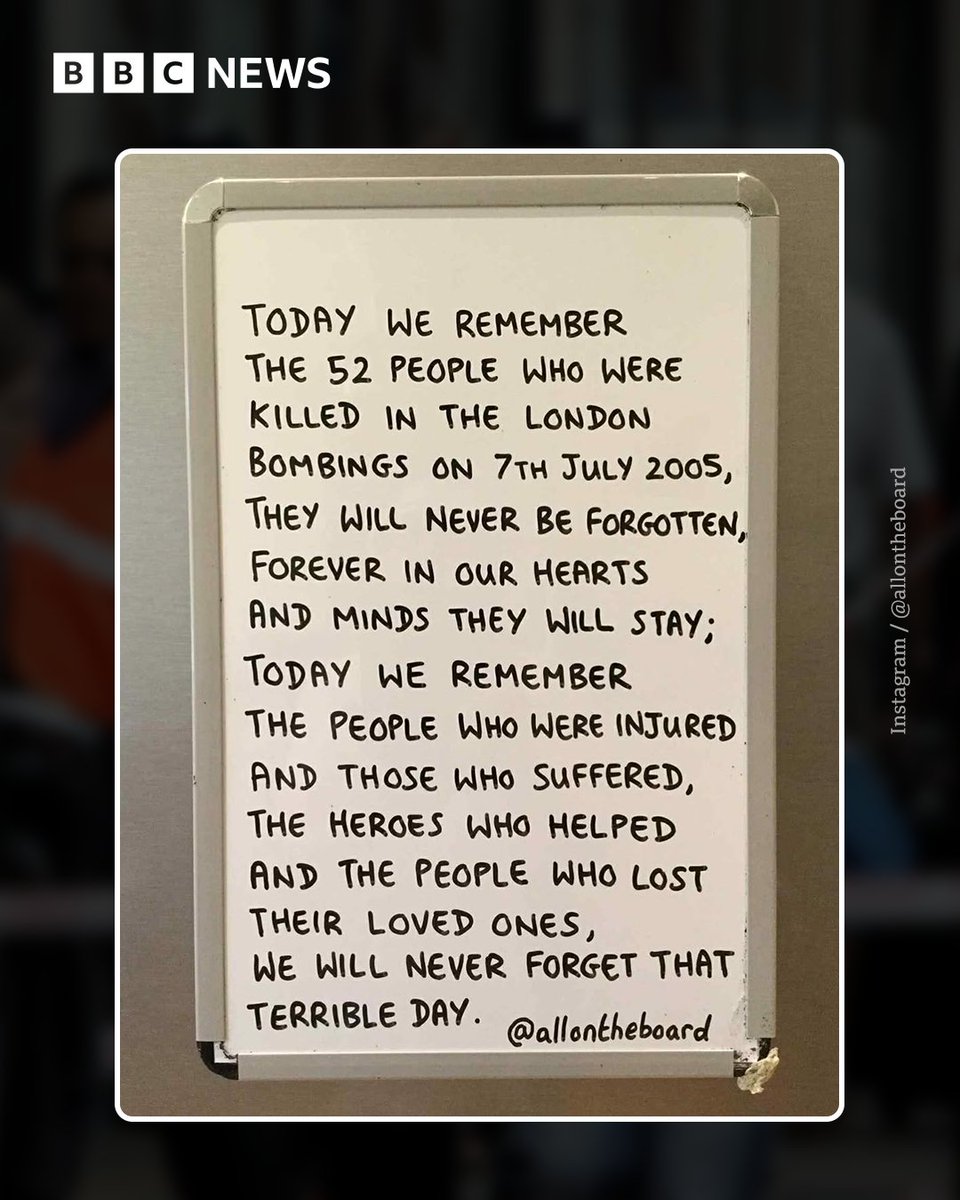 BBC NEWS
TODAY WE REMEMBER
THE 52 PEOPLE WHO WERE
KILLED IN THE LONDON
BOMBINGS ON 7TH JULY 2005,
THEY WILL NEVER BE FORGOTTEN,
FOREVER IN OUR HEARTS
AND MINDS THEY WILL STAY;
TODAY WE REMEMBER
THE PEOPLE WHO WERE INJURED
AND THOSE WHO SUFFERED,
THE HEROES WHO HELPED
AND THE PEOPLE WHO LOST
THEIR LOVED ONES,
WE WILL NEVER FORGET THAT
TERRIBLE DAY.
@allontheboard
Instagram / @allontheboard